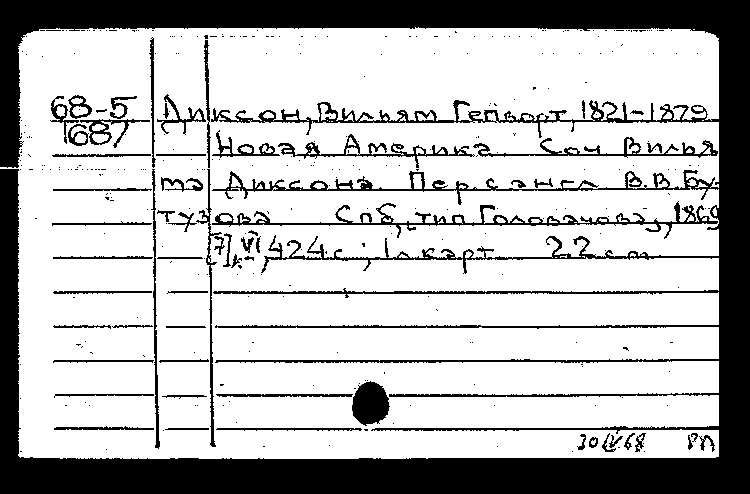 68-5 Диксон, Вильям Гепворт, 1821-1879
1687
Новая Америка. Соч Вилья
ма Диксона. Пер. с англ В.В. Бу-
тузова Спб, тип. Головачова, 1869
[7], VI, 424 с; 1 л карт 22 cm
30 IV 68 РЛ